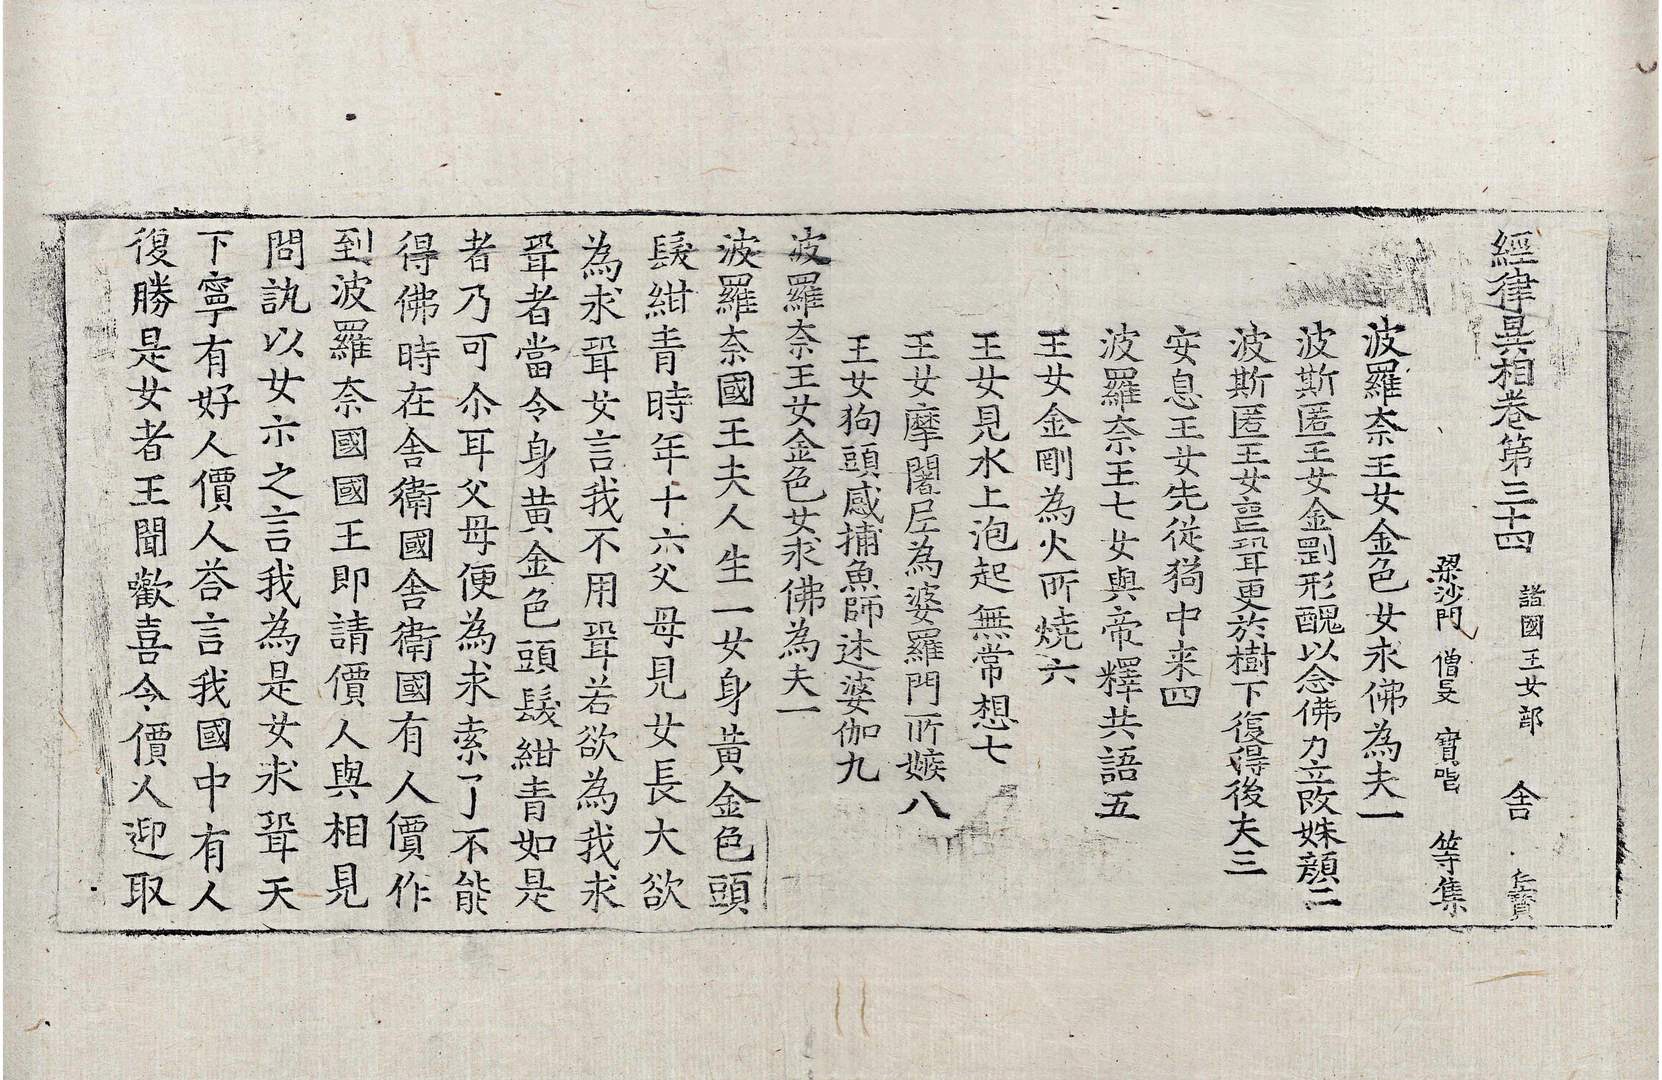 經律異相卷第三十四 諸國王女部 舎 仁寶
梁沙門 僧旻 寶唱 等集
波羅奈王女金色女求佛為夫一
波斯匿王女金剛形醜以念佛力立改姝顔二
波斯匿王女喪聟更於樹下復得後夫三
安息王女先從猗中来四
波羅奈王七女與帝釋共語五
王女金剛為火所燒六
王女見水上泡起無常想七
王女摩闍𡰱為婆羅門所嫉八
王女狗頭感捕魚師述婆伽九
波羅奈王女金色女求佛為夫一
波羅奈國王夫人生一女身黃金色頭
髮紺青時年十六父母見女長大欲
為求聟女言我不用聟若欲為我求
聟者當令身黃金色頭髮紺青如是
者乃可尒耳父母便為求索了不能
得佛時在舎衛國舎衛國有人價作
到波羅奈國國王即請價人與相見
問訊以女示之言我為是女求聟天
下寧有好人價人荅言我國中有人
復勝是女者王聞歡喜令價人迎取